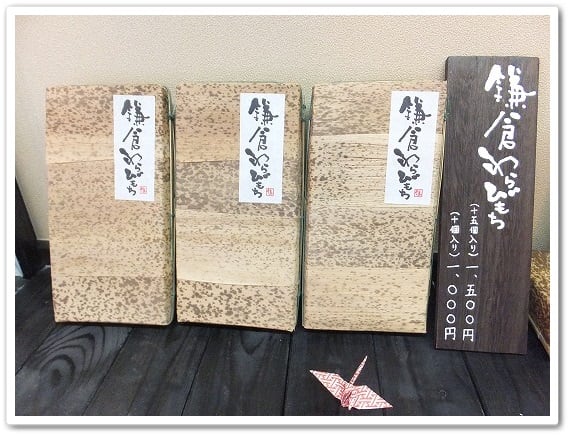 鎌倉わらびもち
鎌倉わらびもち
鎌倉わらびもち
鎌倉わらびもち
(十五個入り)一、五〇〇円
(十個入り)一、〇〇〇円